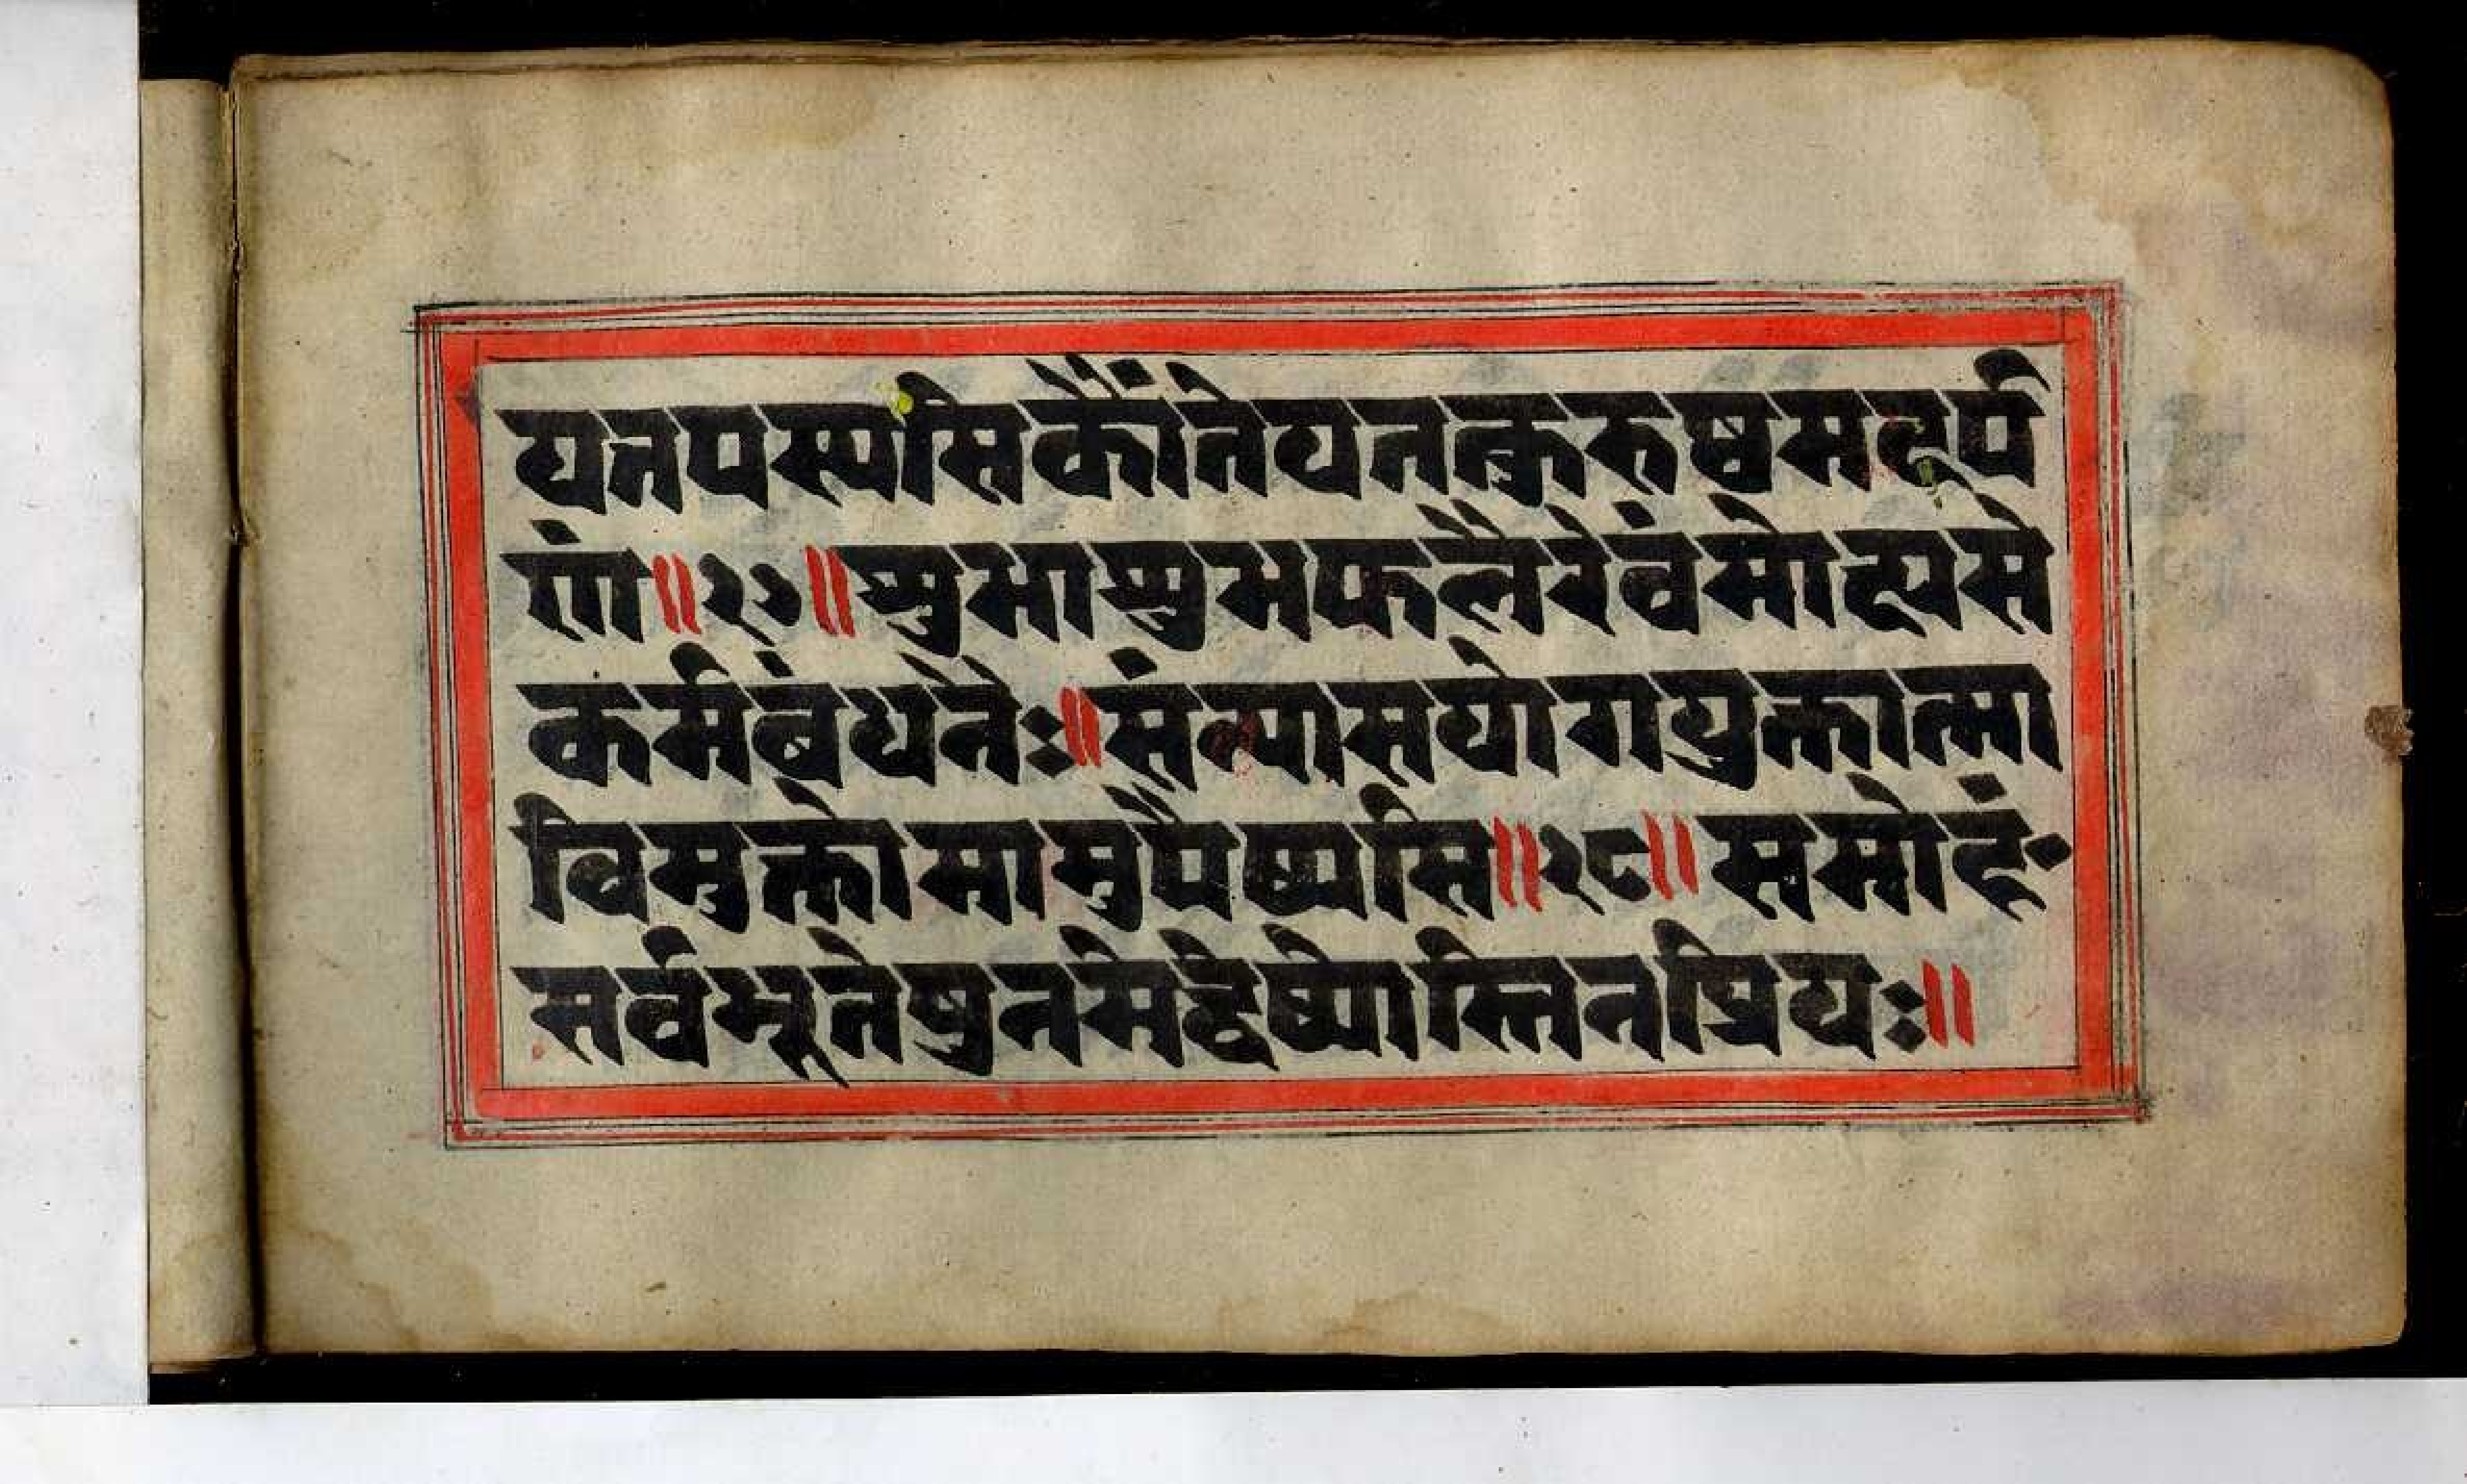 यत्तपस्यसिकौंतेयतत्कुरुष्वमदर्प
णं॥२७॥शुभाशुभफलैरेवंमोक्ष्यसे
कर्मबंधनैः॥संन्यासयोगयुक्तात्मा
विमुक्तोमामुपैष्यसि॥२८॥समोहं
सर्वभूतेषुनमेद्वेष्योस्तिनप्रियः॥